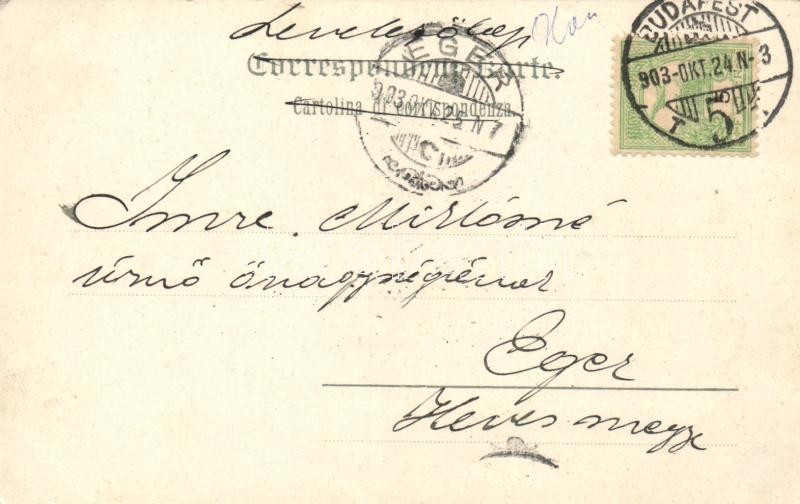 Levelezőlap
Correspondenz-Karte.
Cartolina di corrispondenza.
BUDAPEST
903-OKT.24 N-3
T
5
EGER
903 OKT. 25 N 7
C
Imre Miklósné
úrnő őnagyságának
Eger
Heves megye